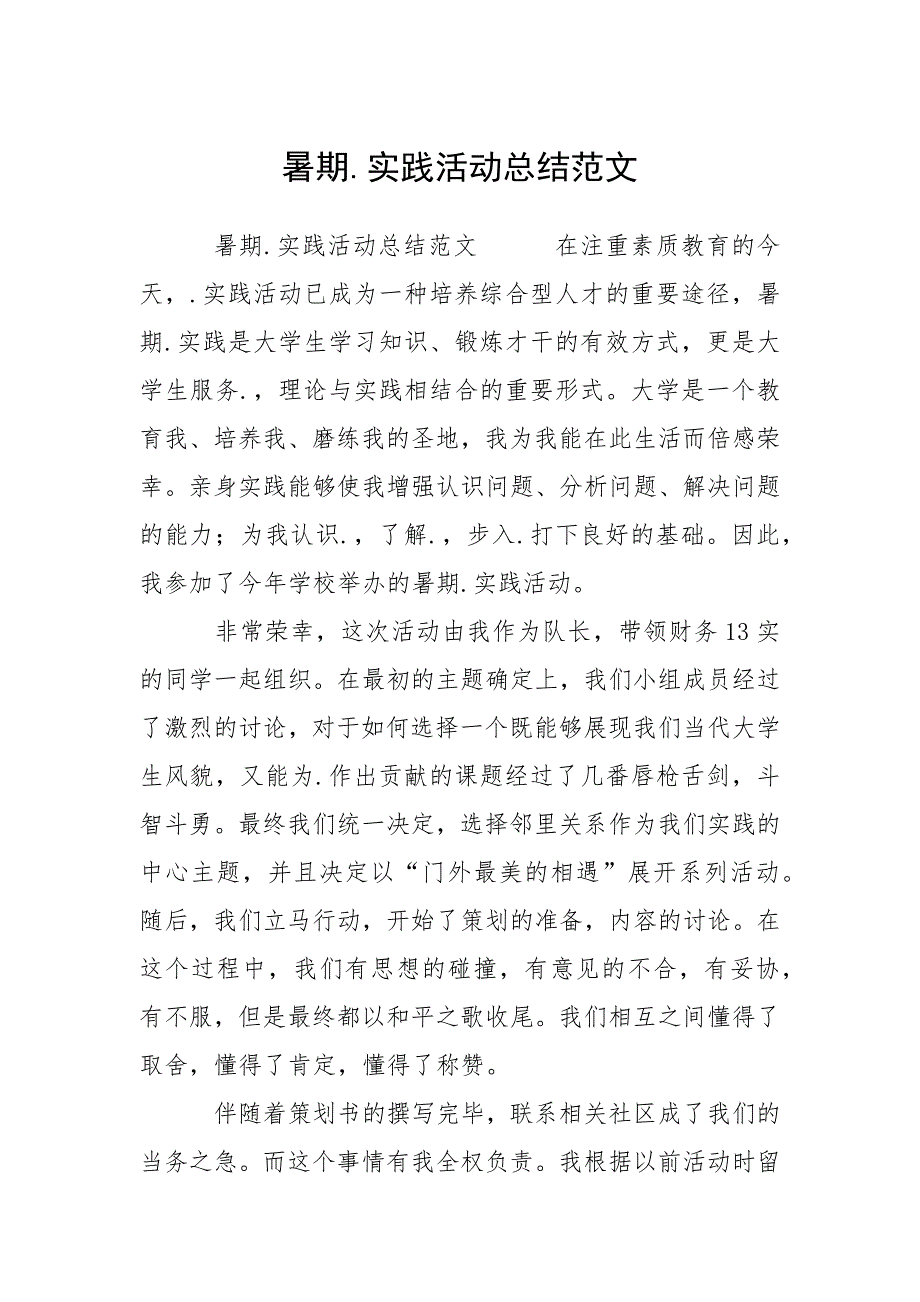 暑期.实践活动总结范文
暑期.实践活动总结范文　　　在注重素质教育的今
天，.实践活动已成为一种培养综合型人才的重要途径，暑
期.实践是大学生学习知识、锻炼才干的有效方式，更是大
学生服务.，理论与实践相结合的重要形式。大学是一个教
育我、培养我、磨练我的圣地，我为我能在此生活而倍感荣
幸。亲身实践能够使我增强认识问题、分析问题、解决问题
的能力；为我认识.，了解.，步入.打下良好的基础。因此，
我参加了今年学校举办的暑期.实践活动。
非常荣幸，这次活动由我作为队长，带领财务13实
的同学一起组织。在最初的主题确定上，我们小组成员经过
了激烈的讨论，对于如何选择一个既能够展现我们当代大学
生风貌，又能为.作出贡献的课题经过了几番唇枪舌剑，斗
智斗勇。最终我们统一决定，选择邻里关系作为我们实践的
中心主题，并且决定以“门外最美的相遇”展开系列活动。
随后，我们立马行动，开始了策划的准备，内容的讨论。在
这个过程中，我们有思想的碰撞，有意见的不合，有妥协，
有不服，但是最终都以和平之歌收尾。我们相互之间懂得了
取舍，懂得了肯定，懂得了称赞。
伴随着策划书的撰写完毕，联系相关社区成了我们的
当务之急。而这个事情有我全权负责。我根据以前活动时留